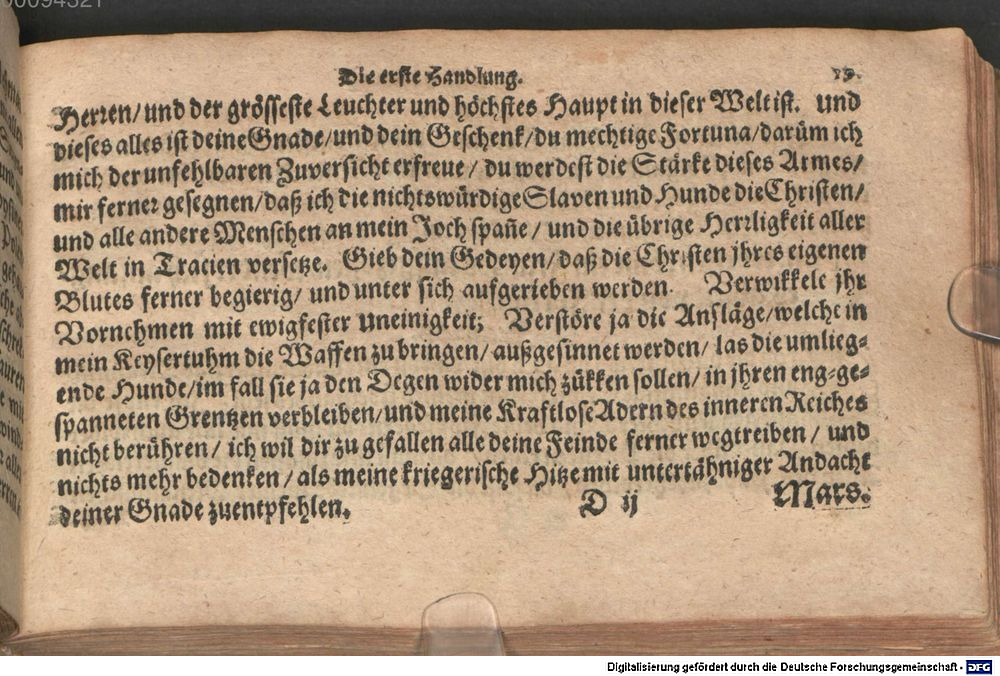 00094521
Die erste Handlung. 19.
Herren/und der grösseste Leuchter und höchstes Haupt in dieser Welt ist. und
dieses alles ist deine Gnade/und dein Geschenk/du mechtige Fortuna/darüm ich
mich der unfehlbaren Zuversicht erfreue/ du werdest die Stärke dieses Armes/
mir ferner gesegnen/daß ich die nichtswürdige Slaven und Hunde die Christen/
und alle andere Menschen an mein Joch spañe/ und die übrige Herrligkeit aller
Welt in Tracien versetze. Gieb dein Gedeyen/daß die Christen jhres eigenen
Blutes ferner begierig/ und unter sich aufgerieben werden. Verwikkele jhr
Vornehmen mit ewigfester uneinigkeit; Verstöre ja die Ansläge/welche in
mein Keysertuhm die Waffen zu bringen/außgesinnet werden/ las die umlieg-
ende Hunde/im fall sie ja den Degen wider mich zükken sollen/ in jhren eng-ge-
spanneten Grentzen verbleiben/und meine Kraftlose Adern des inneren Reiches
nicht berühren/ ich wil dir zu gefallen alle deine Feinde ferner wegtreiben/ und
nichts mehr bedenken/als meine kriegerische Hitze mit untertähniger Andacht
deiner Gnade zuentpfehlen. D ij Mars.
Digitalisierung gefördert durch die Deutsche Forschungsgemeinschaft - DFG